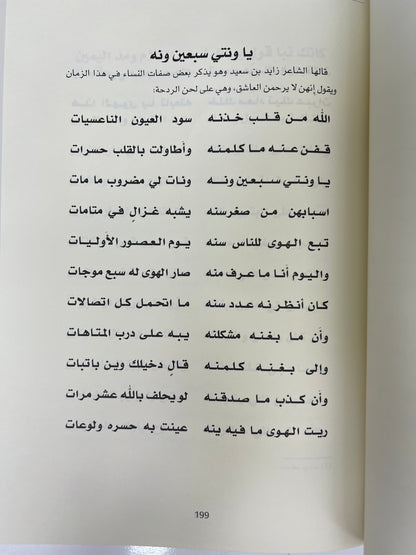 يا ونتي سبعين ونه
قالها الشاعر زايد بن سعيد وهو يذكر بعض صفات النساء في هذا الزمان
ويقول إنهن لا يرحمن العاشق، وهي على لحن الردحة:
الله مـن قـلـب خـذنـه سود العيون الناعسيات
قـفـن عـنـه مـا كلـمـنه وأطاولت بالقلب حسرات
يـا ونـتـي سـبـعـين ونــه ونات لي مضروب ما مات
اسبابهن من صغرسنه يشبه غـزالٍ في متامات
تـبـع الـهـوى للناس سنه يـوم الـعـصـور الأولـيـات
والـيـوم أنـا ما عـرف منه صار الهوى له سبع موجات
كـان أنظـر نـه عـدد سـنه ما اتـحـمـل كـل اتـصالات
وأن مـا بـغـنـه مشكلنه يبه على درب المتاهات
وإلى بـغـنـه كلـمـنه قـالٍ دخيلك وين باتبات
وأن كـذب مـا صـدقـنه لو يحلف بالله عشر مرات
ريـت الـهـوى مـا فيـه ينه عينت به حسره ولوعات
199